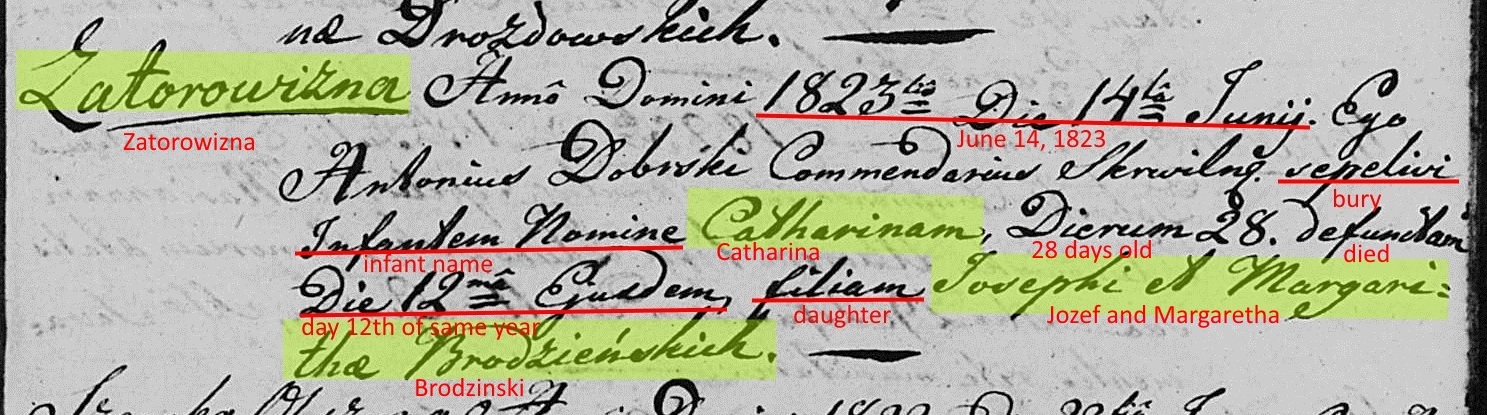 næ Drozdowskich.
Zatorowizna Annô Domini 1823tio Die 14ta Junij. Ego
Zatorowizna
June 14, 1823
Antonius Dobrski Commendarius Skrwilng. sepelivi
bury
Infantem Nomine Catharinam, Dierum 28. defunctam
infant name Catharina 28 days old died
Die 12mâ Ejusdem, filiam Josephi et Margari=
day 12th of same year daughter Jozef and Margaretha
thæ Brodzieńskich.
Brodzinski